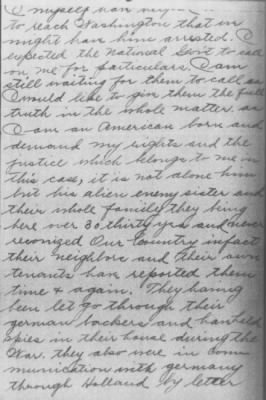 I myself
to reach Washington that in
might have him arrested. I
expected the National Gov't to call
on me for particulars. I am
still waiting for them to call as
I would like to give them the full
truth in the whole matter. as
I am an American born and
demand my rights and the
justice which belongs to me in
this case, it is not alone him
but his alien enemy sister and
their whole family they being
here over 30 thirty yrs and never
reconized Our Country infact
their neighbors and their own
tenants have reported them
time & again. They having
been let go through their
german backers and
spies in their house during the
War, they also were in com
munication with germany
through Holland by letter